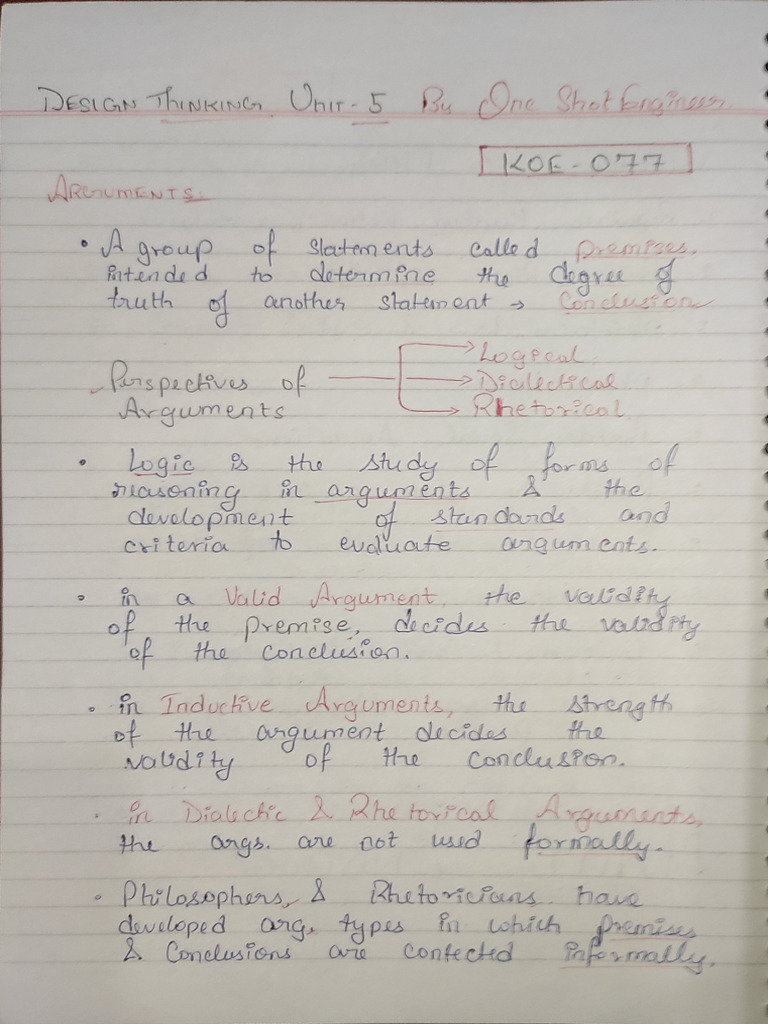 DESIGN THINKING Unit-5 By One Shot Engineer
KOE-077
ARGUMENTS:
• A group of statements called premises,
intended to determine the degree of
truth of another statement → Conclusion
Perspectives of
Arguments
Logical
Dialectical
Rhetorical
• Logic is the study of forms of
reasoning in arguments & the
development of standards and
criteria to evaluate arguments.
• in a Valid Argument, the validity
of the premise, decides the validity
of the conclusion.
• in Inductive Arguments, the strength
of the argument decides the
validity of the conclusion.
• in Dialectic & Rhetorical Arguments,
the args. are not used formally.
• Philosophers, & Rhetoricians have
developed arg. types in which premises
& Conclusions are contected informally.